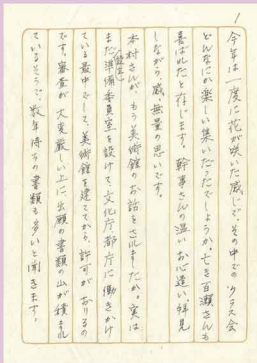 1
今年は一度に花が咲いた感じで、その中でのクラス会
どんなにか楽しい集いだったでしょうか。亡き百瀬さんも
喜ばれたと存じます。幹事さんの温いお心遣い、拝見
しながら、感無量の思いです。
本村さんが、もう美術館のお話をされましたか。実は
まだ準備委員室を設けて、文化庁、都庁に働きかけ
ている最中でして、美術館を建ててから、許可がおりるの
です。審査が大変厳しい上に、出願の書類の山が積まれ
ているそうで、数年待ちの書類も多いと聞きます。